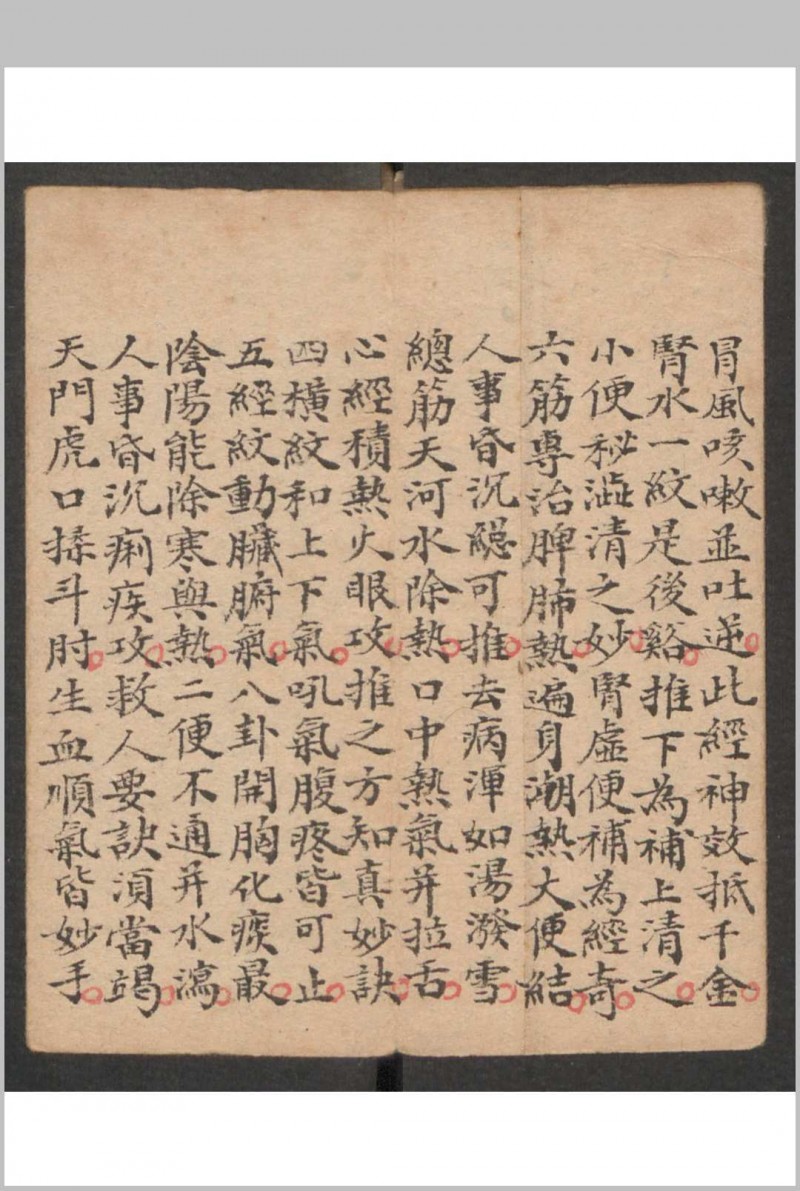 冒風咳嗽並吐逆此經神效抵千金
腎水一紋是後谿推下為補上清之
小便秘澁清之妙腎虛便補為經奇
六筋專治脾肺熱遍身潮熱大便結
人事昏沉緫可推去病渾如湯潑雪
總筋天河水除熱口中熱氣并拉舌
心經積熱火眼攻推之方知真妙訣
四橫紋和上下氣吼氣腹疼皆可止
五經紋動臟腑氣八卦開胸化痰最
陰陽能除寒與熱二便不通并水瀉
人事昏沉痢疾攻救人要訣須當竭
天門虎口揉斗肘生血順氣皆妙手